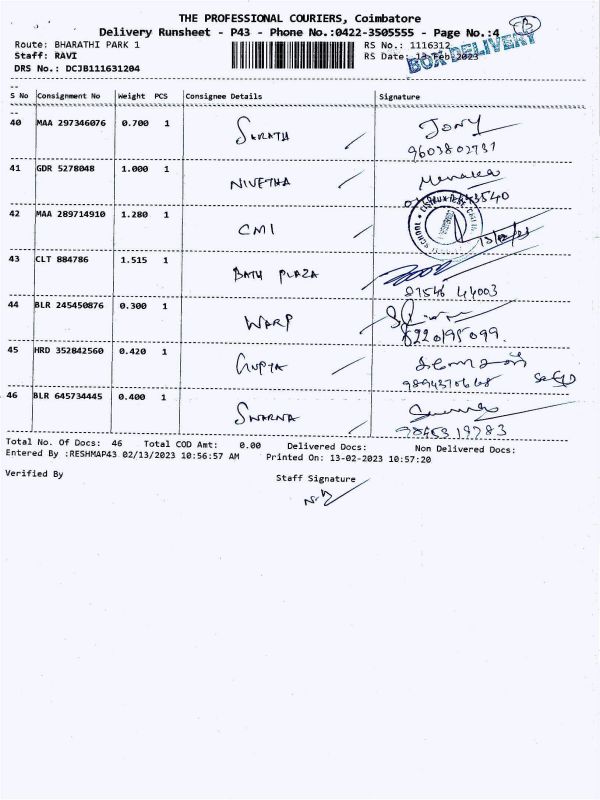 THE PROFESSIONAL COURIERS, Coimbatore
Delivery Runsheet - P43 - Phone No.:0422-3505555 - Page No.:4
Route: BHARATHI PARK 1 RS No.: 1116312
Staff: RAVI RS Date: 13-Feb-2023
BOX DELIVERY
DRS No.: DCJB111631204
S No Consignment No Weight PCS Consignee Details Signature
40 MAA 297346076 0.700 1 SARATH Jony
9603802737
41 GDR 5278048 1.000 1 NIVETHA Menaka
42 MAA 289714910 1.280 1 CMI
43 CLT 884786 1.515 1 BATU PLAZA
87546 44003
44 BLR 245450876 0.300 1 WARP
8220195099.
45 HRD 352842560 0.420 1 GUPTA
46 BLR 645734445 0.400 1 SWARNA
Total No. Of Docs: 46 Total COD Amt: 0.00 Delivered Docs: Non Delivered Docs:
Entered By :RESHMAP43 02/13/2023 10:56:57 AM Printed On: 13-02-2023 10:57:20
Verified By Staff Signature